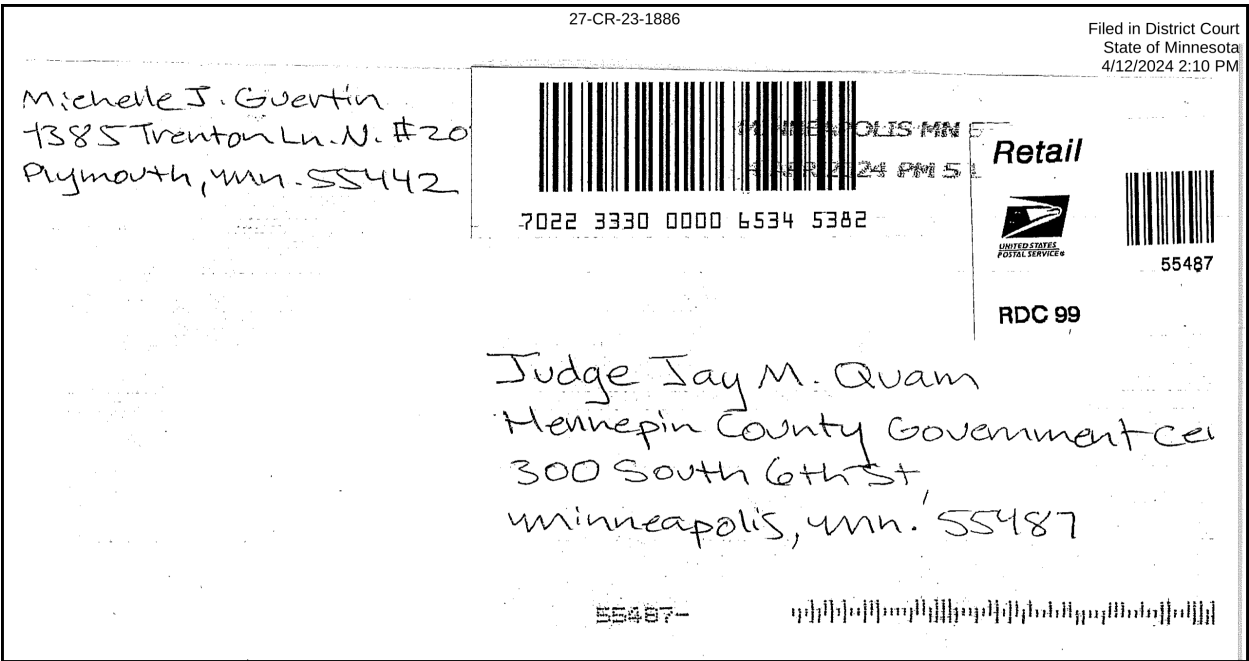 27-CR-23-1886
Filed in District Court
State of Minnesota
4/12/2024 2:10 PM
Michelle J. Guertin
7385 Trenton Ln. N. #20
Plymouth, mn. 55442
MINNEAPOLIS MN
APR 2024 PM 5 L
7022 3330 0000 6534 5382
Retail
UNITED STATES
POSTAL SERVICE®
55487
RDC 99
Judge Jay M. Quam
Hennepin County Government Cei
300 South 6th St,
Minneapolis, mn. 55487
55487-